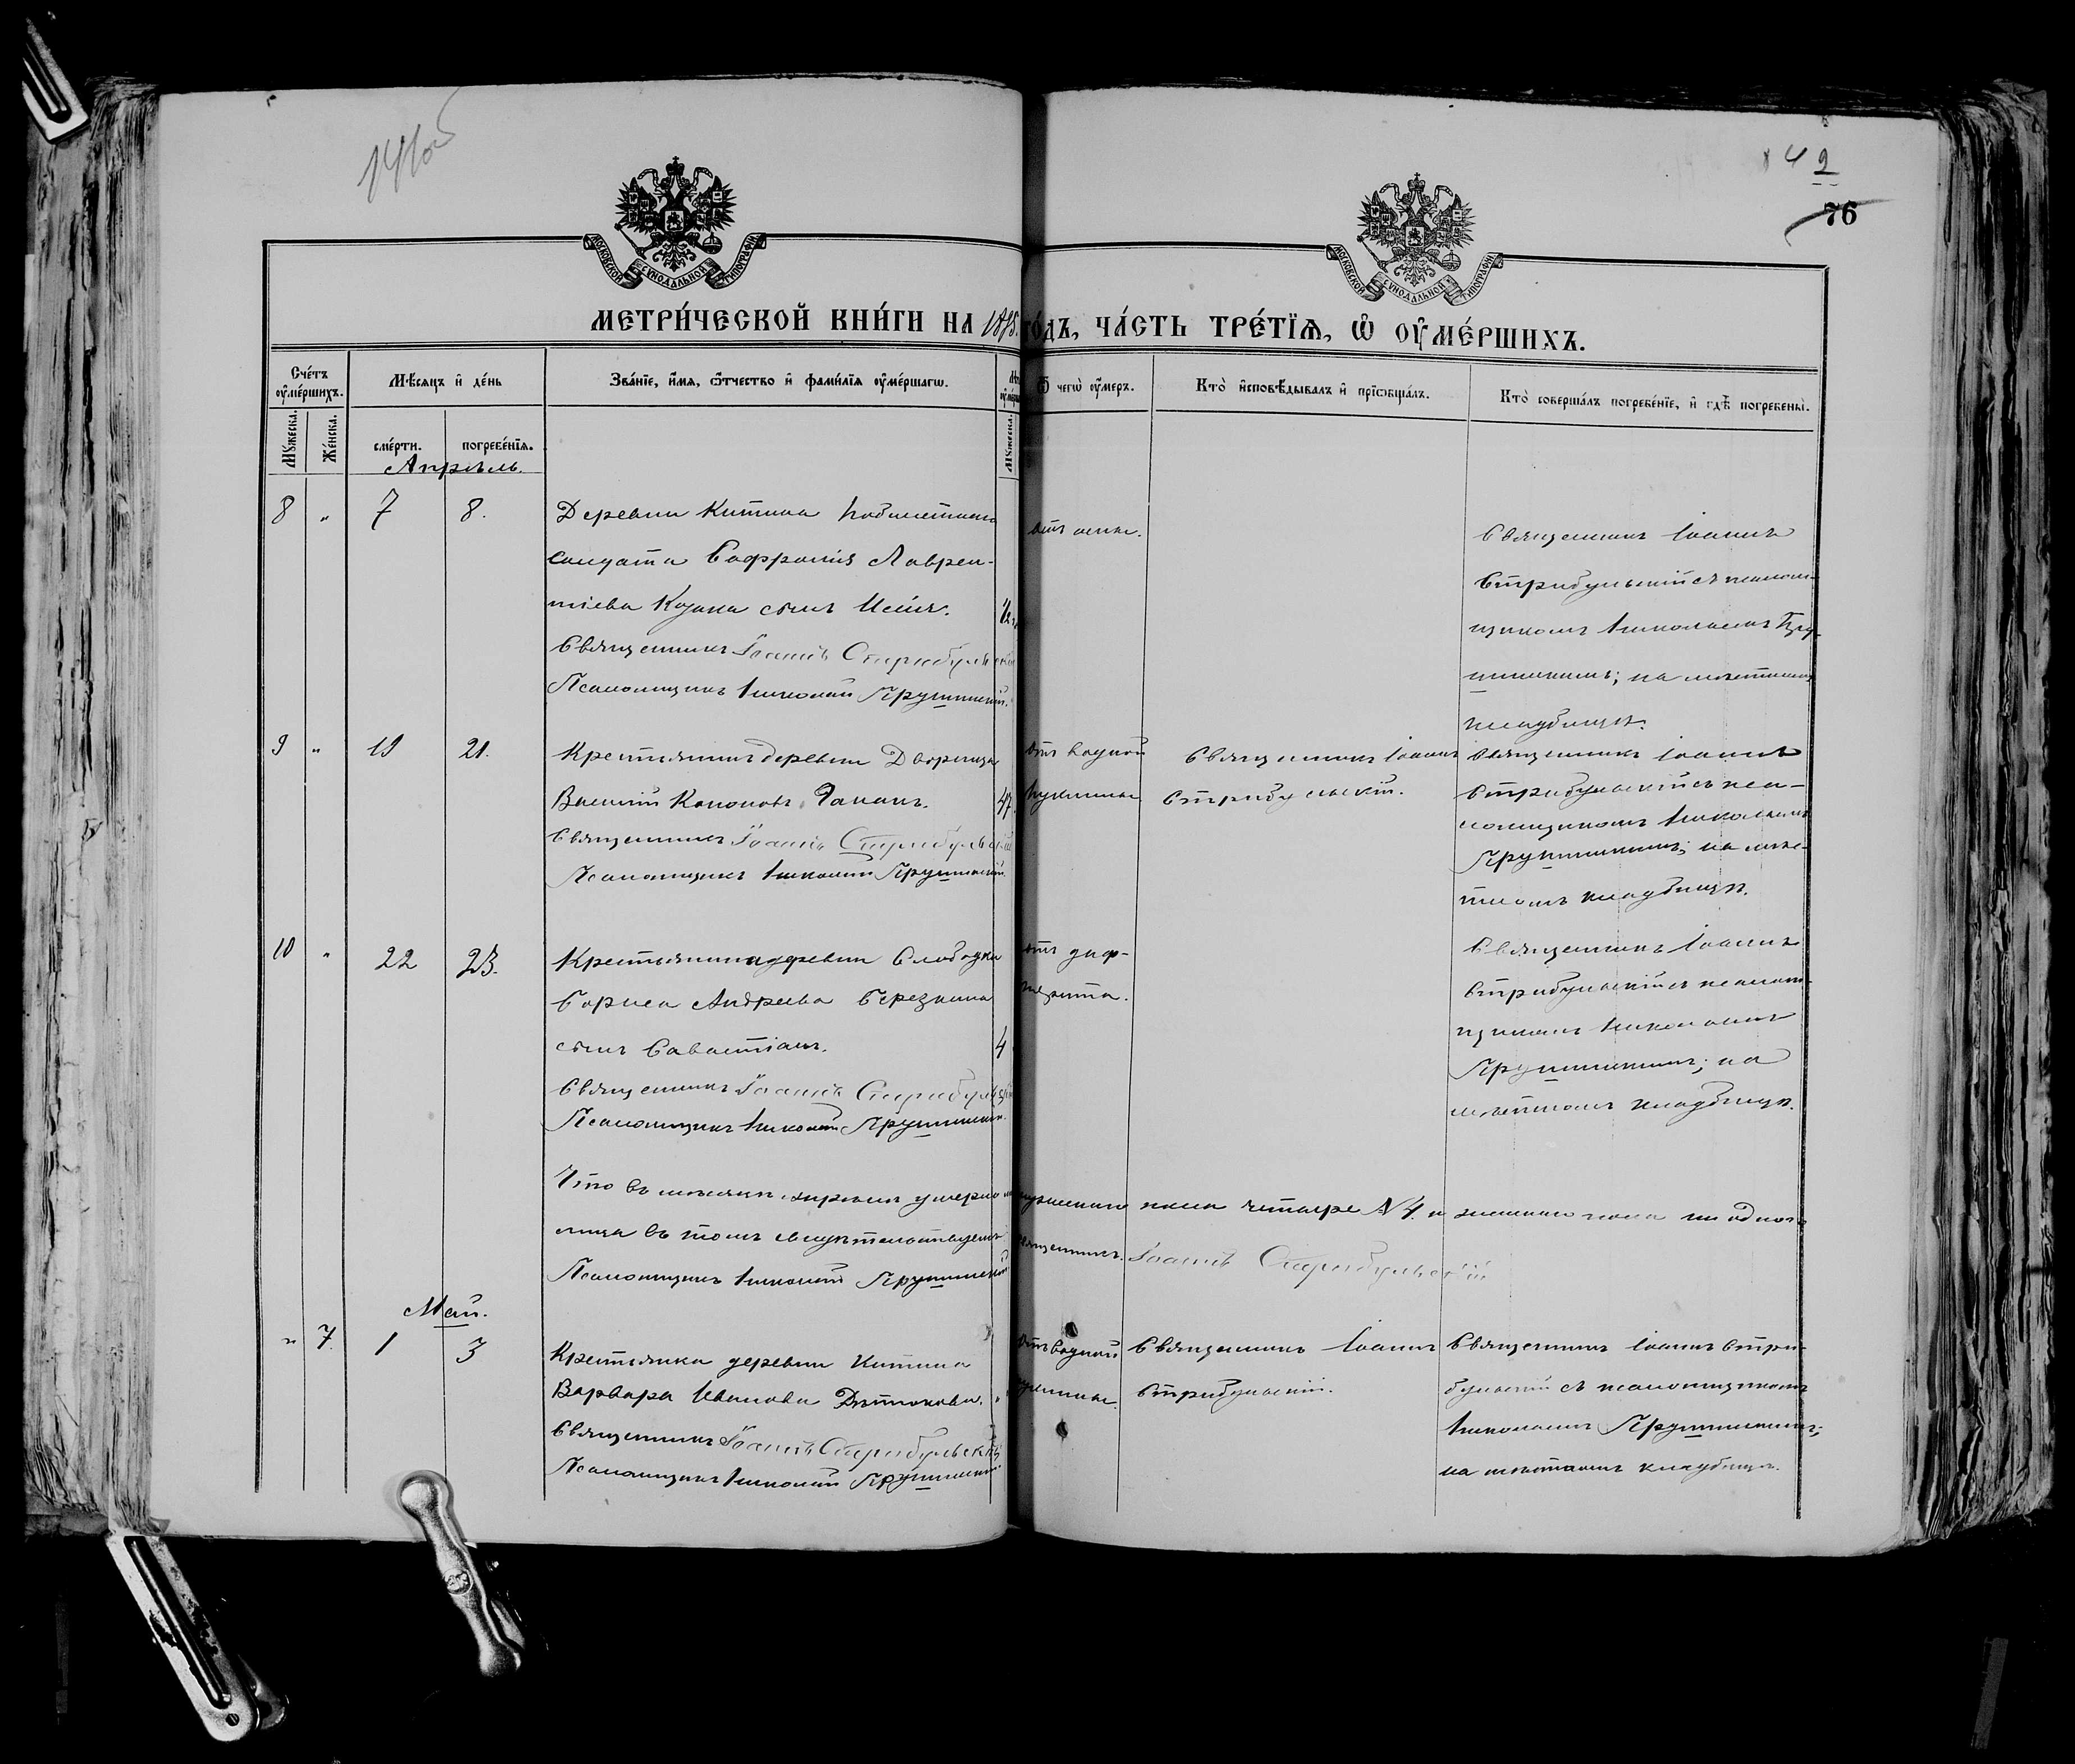 141об
142
76
МОСКОВСКОЙ СѴНОДАЛЬНОЙ ТИПОГРАФІИ
МОСКОВСКОЙ СѴНОДАЛЬНОЙ ТИПОГРАФІИ
МЕТРИ́ЧЕСКОЙ КНИ́ГИ НА
ГО́ДЪ, ЧА́СТЬ ТРЕ́ТЇѦ, Ѡ҆ ОУ҆МЕ́РШИХЪ.
Сче́тъ оу҆ме́ршихъ.
Мꙋ́жеска.
Же́нска.
Мѣ́сяцъ и҆ де́нь
сме́рти.
погребе́нїѧ.
Зва́нїе, и҆́мѧ, ѻ҆́тчество и҆ фами́лїѧ оу҆ме́ршагѡ.
Мꙋ́жеска.
Ѿ чегѡ̀ оу҆́меръ.
Кто̀ и҆сповѣ́дывалъ и҆ прїѡбща́лъ.
Кто̀ соверша́лъ погребе́нїе, и҆ гдѣ̀ погребены̀.
Апрѣль.
8 " 7 8.
Деревни Китина
солдата Софронія Лаврен-
тіева Козака сынъ
Священникъ Іоаннъ Стрибульскій
Псаломщикъ Николай
Священникъ Іоаннъ
Стрибульскій съ псалом-
щикомъ Николаемъ
на мѣстномъ
кладбищѣ.
9 " 19 21.
Крестьянинъ деревни Дворища
Василій Кононовъ 47.
Священникъ Іоаннъ Стрибульскій
Псаломщикъ Николай
отъ водной
пухлины
Священникъ Іоаннъ
Стрибульскій.
Священникъ Іоаннъ
Стрибульскій съ пса-
ломщикомъ Николаемъ
на мѣс-
тномъ кладбищѣ.
10 " 22 23.
Крестьянина деревни Слободки
Бориса Андреева Березкина
сынъ Савастіанъ. 4
Священникъ Іоаннъ Стрибульскій
Псаломщикъ Николай
отъ диф-
терита.
Священникъ Іоаннъ
Стрибульскій съ псалом-
щикомъ Николаемъ
на
мѣстномъ кладбищѣ.
Что въ мѣсяцѣ апрѣлѣ умерло мужескаго пола четыре №4. и женскаго пола ни одного
лица въ томъ свидѣтельствуемъ Священникъ Іоаннъ Стрибульскій
Псаломщикъ Николай
Май.
" 7. 1 3
Крестьянка деревни Китина
Варвара Иванова
Священникъ Іоаннъ Стрибульскій
Псаломщикъ Николай
отъ водной
пухлины.
Священникъ Іоаннъ
Стрибульскій.
Священникъ Іоаннъ Стри-
бульскій съ псаломщикомъ
Николаемъ
на мѣстномъ кладбищѣ.